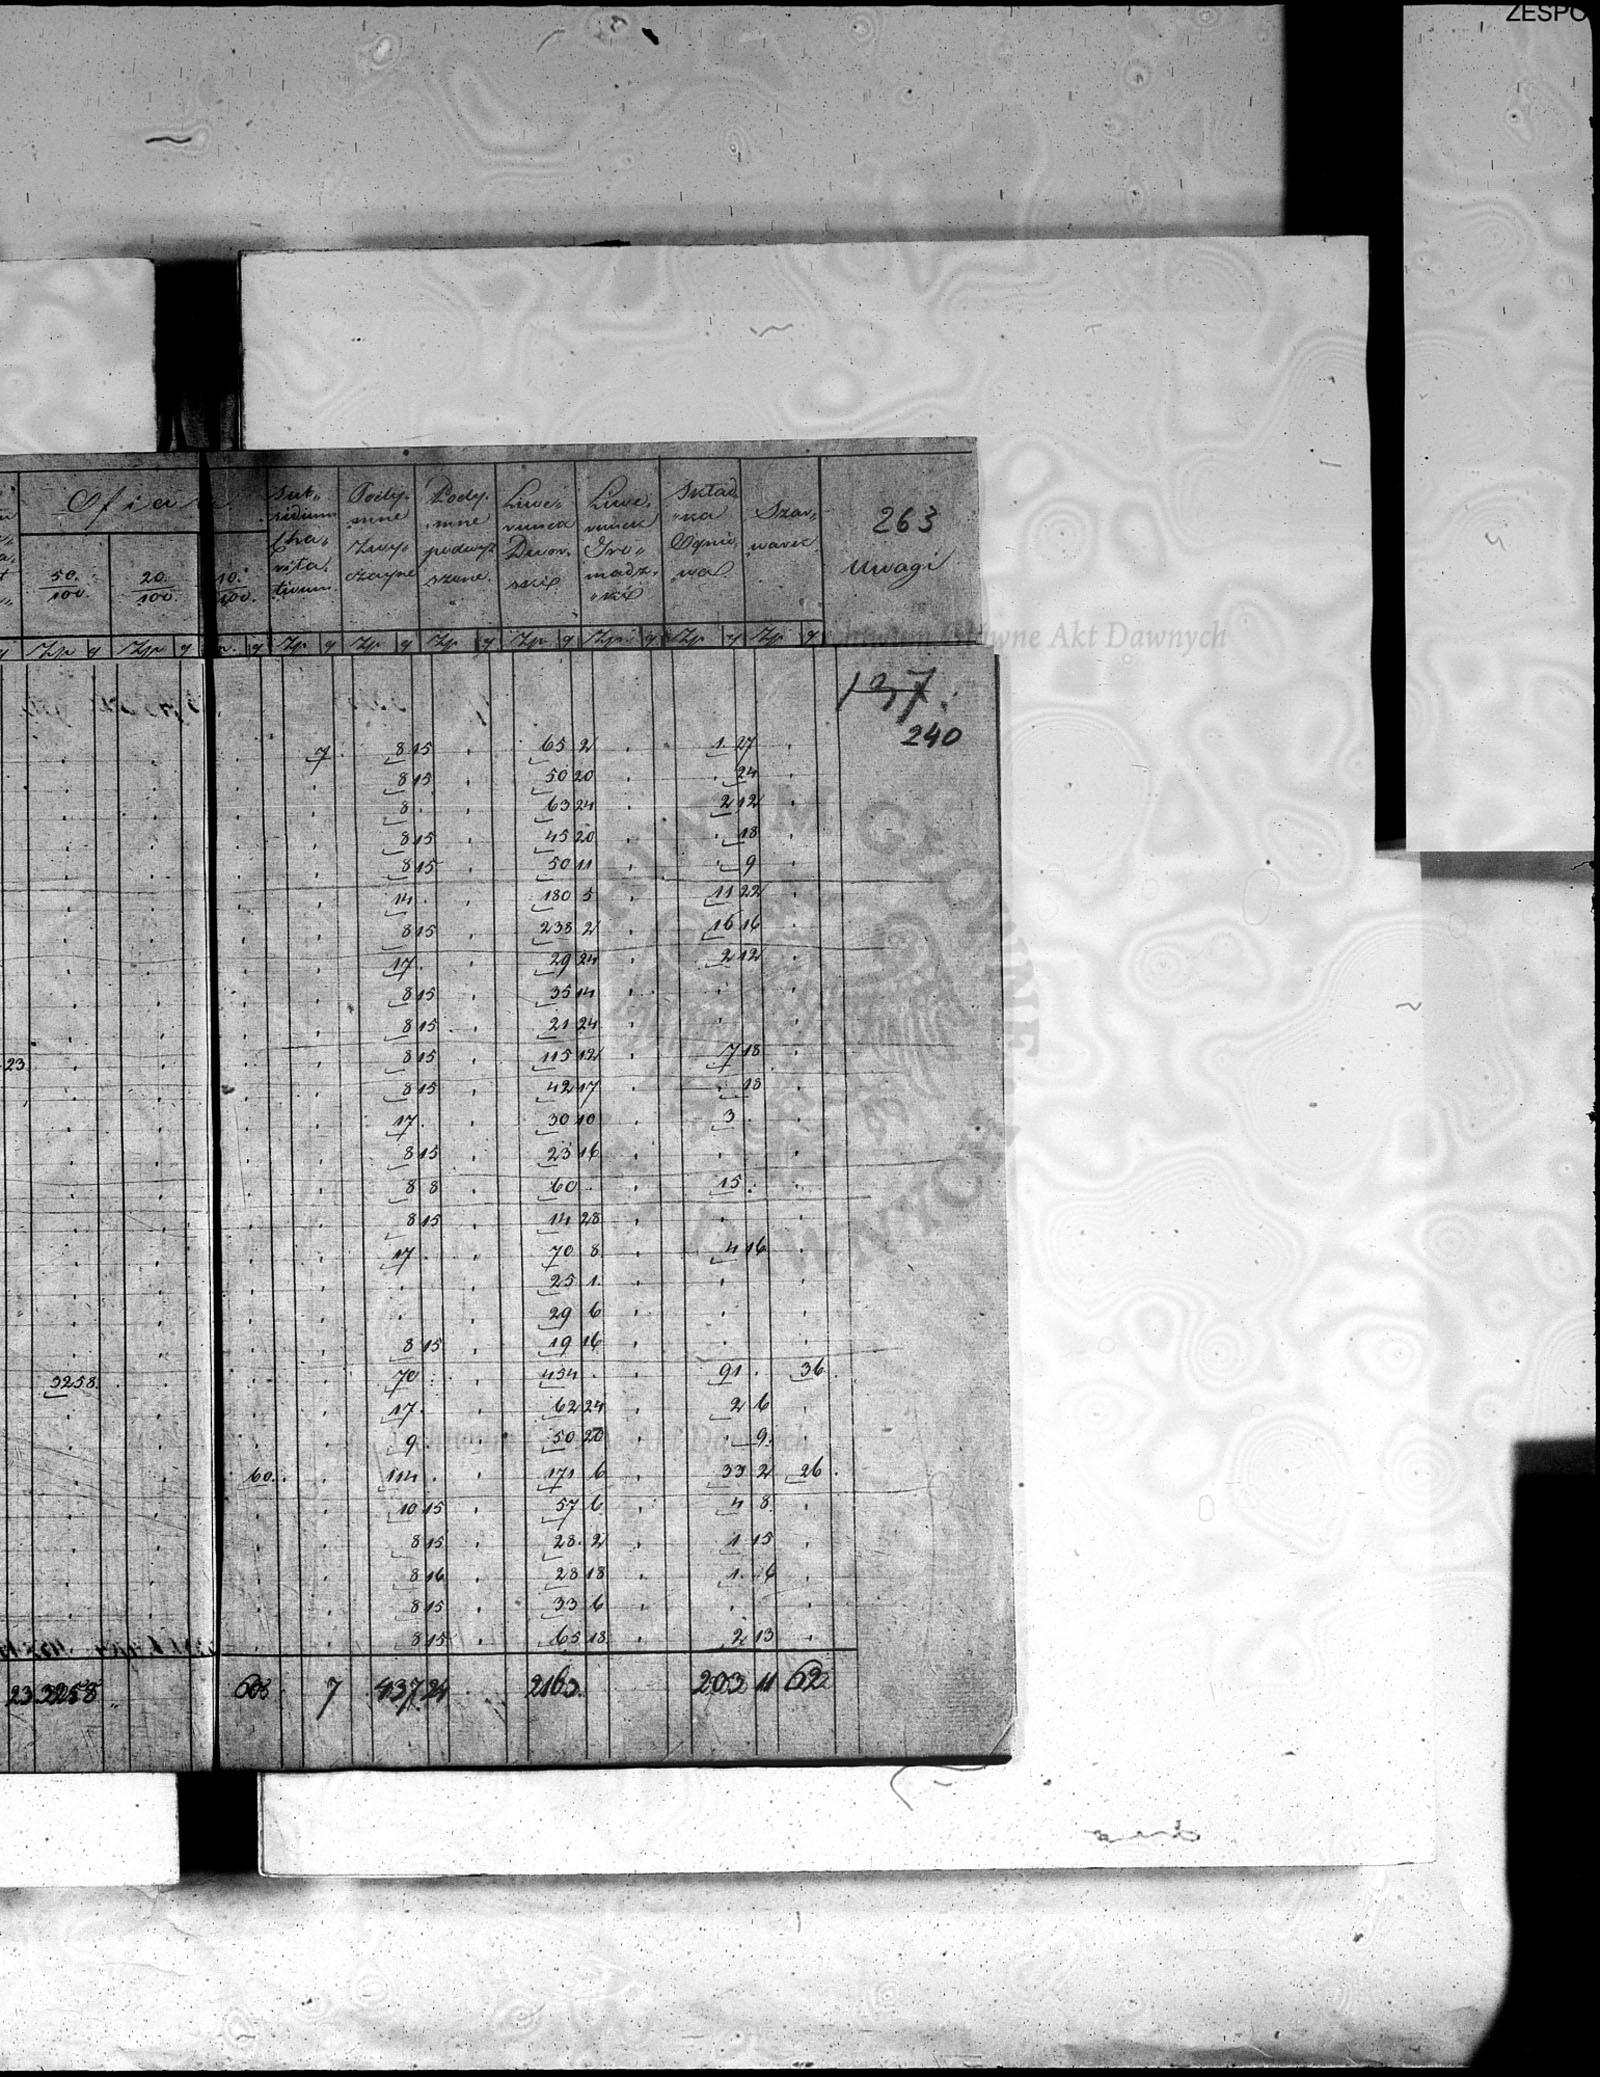 ZESPO
Ofiara
50/100 20/100 10/100
Subsidium Charitativum
Podymne Zwyczayne
Podymne podwyższone
Liwerunek Dworski
Liwerunek Gromadzki
Składka Ogniowa
Szarwark
263
Uwagi
Zp g Zp g g Zp g Zp g Zp g Zp g Zp g Zp g Zp g
Archiwum Główne Akt Dawnych
137.
240
7 8 15 65 2 1 27
8 15 50 20 24
8 63 24 2 12
8 15 45 20 18
8 15 50 11 9
14 180 5 11 22
8 15 238 2 16 16
17 29 24 2 12
8 15 35 14
8 15 21 24
23 8 15 115 12 7 18
8 15 42 17 18
17 30 10 3
8 15 23 16
8 8 60 15
8 15 14 28
17 70 8 4 16
25 1
29 6
8 15 19 16
3258 70 454 91 36
17 62 24 2 6
9 50 20 9
60 114 171 6 33 2 26
10 15 57 6 4 8
8 15 28 2 1 15
8 16 28 18 1 6
8 15 33 6
8 15 65 18 2 13
23 3258 7 437 24 203 11 62
ARCHIWUM GŁÓWNE AKT DAWNYCH
Archiwum Główne Akt Dawnych